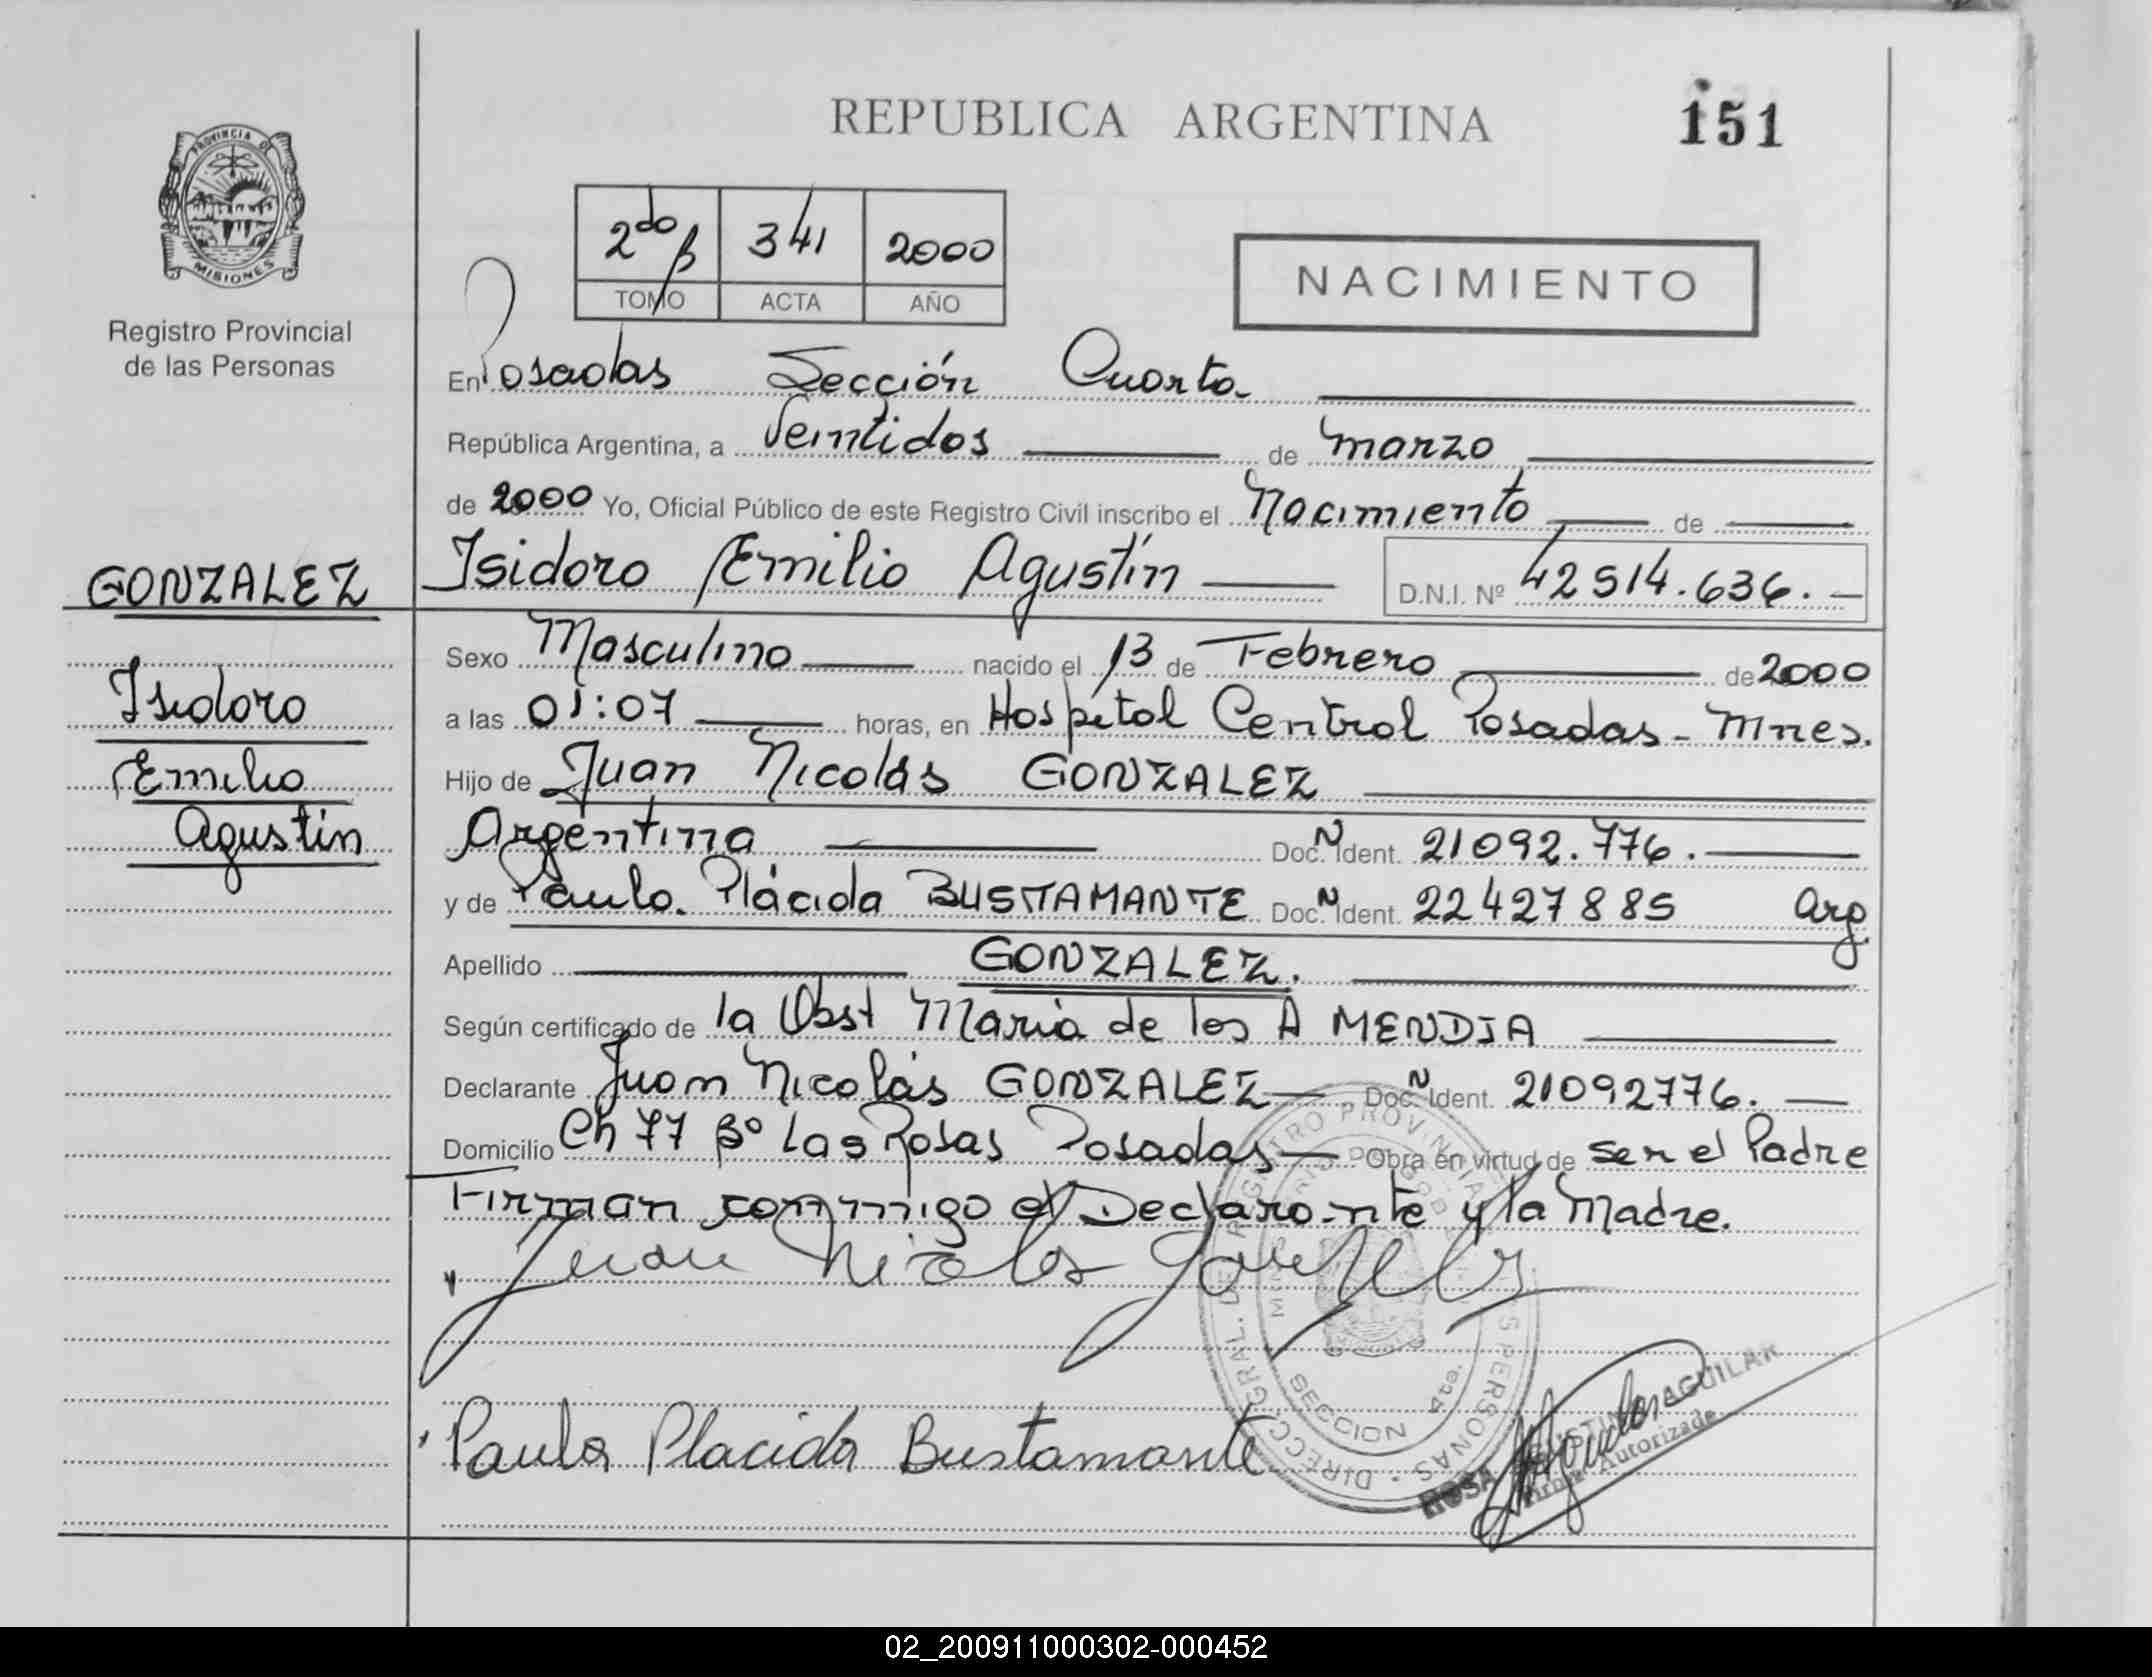 REPUBLICA ARGENTINA
151
PROVINCIA DE
MISIONES
Registro Provincial
de las Personas
2do B 341 2000
TOMO ACTA AÑO
NACIMIENTO
En Posadas Sección Cuarta
República Argentina, a Veintidos de marzo
de 2000 Yo, Oficial Público de este Registro Civil inscribo el Nacimiento de
GONZALEZ Isidoro Emilio Agustín D.N.I. Nº 42514.636.
Sexo Masculino nacido el 13 de Febrero de 2000
Isidoro a las 01:07 horas, en Hospital Central Posadas - Mnes.
Emilio Hijo de Juan Nicolás GONZALEZ
Agustín Argentina Doc. N Ident. 21092.776.
y de Paula Plácida BUSTAMANTE Doc. N Ident. 22427885 Arg
Apellido GONZALEZ.
Según certificado de la Obst María de los A MENDIA
Declarante Juan Nicolás GONZALEZ Doc. N Ident. 21092776.
Domicilio Ch 77 Bº Las Rosas Posadas Obra en virtud de ser el Padre
Firman conmigo el Declarante y la Madre.
Juan Nicolas Gonzalez
Paula Placida Bustamante
DIRECC. GRAL. DE REGISTRO PROVINCIAL PERSONAS
SECCION 4ta.
ROSA AGUSTINA AGUILAR
Firma Autorizada
02_200911000302-000452